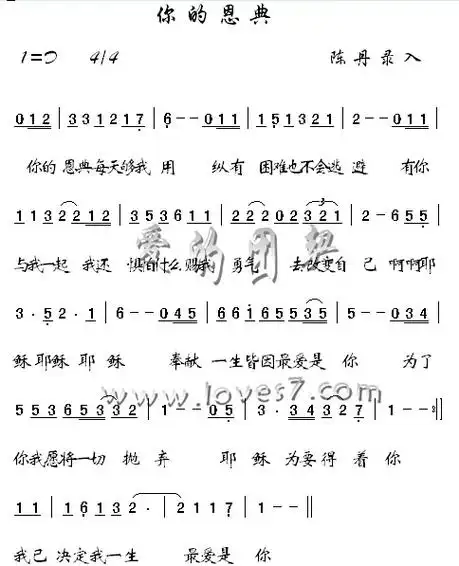 你的恩典
1=D 4/4 陈丹录入
012|331217|6--011|151321|2--011|
你的恩典每天够我用 纵有 困难也不会逃避 有你
1132212|353611|22202321|2-655|
与我一起 我还 惧怕什么 赐我 勇气 去改变自 己 啊啊耶
爱的团契
3·52·1|6--045|66165535|5--034|
稣耶稣 耶 稣 奉献 一生皆因最爱是 你 为了
www.loves7.com
553653332|1--05|3·34327|1--:||
你我愿将一切 抛弃 耶 稣 为要得 着 你
11|16132·|21171|1--||
我已 决定我一生 最爱是 你